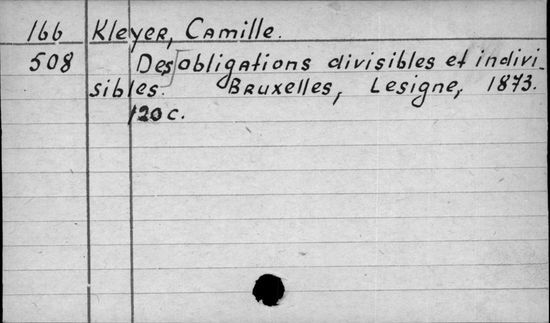 166 Kleyer, Camille.
508 Des obligations divisibles et indivi-
sibles. Bruxelles, Lesigne, 1873.
120 c.